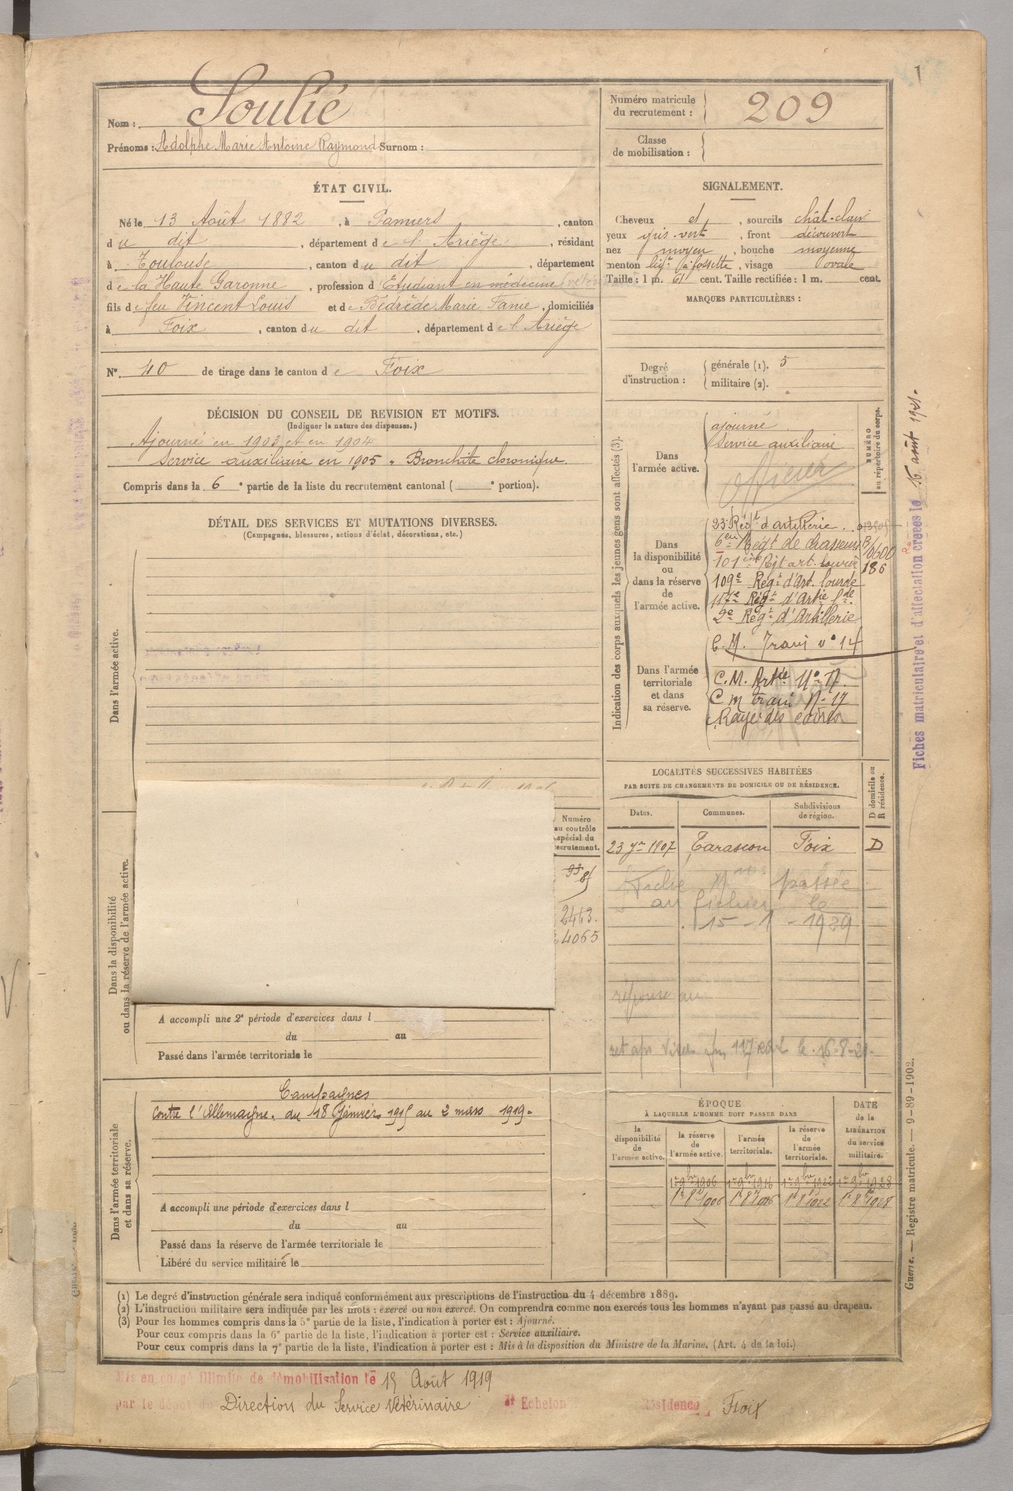 Nom : Soulié
Prénoms : Adolphe Marie Antoine Raymond Surnom :
Numéro matricule du recrutement : 209
Classe de mobilisation :
1
ÉTAT CIVIL.
Né le 13 Août 1882, à Pamiers, canton
du dit, département de l'Ariège, résidant
à Toulouse, canton du dit, département
de la Haute Garonne, profession d'Étudiant en médecine
fils de feu Vincent Louis et de Bedrède Marie Fanie, domiciliés
à Foix, canton du dit, département de l'Ariège
N° 40 de tirage dans le canton de Foix
SIGNALEMENT.
Cheveux et, sourcils chât-clair
yeux gris-vert, front découvert
nez moyen, bouche moyenne
menton lég. à fossette, visage ovale
Taille : 1 m. 61 cent. Taille rectifiée : 1 m. cent.
MARQUES PARTICULIÈRES :
Degré d'instruction : générale (1). 5
militaire (2).
DÉCISION DU CONSEIL DE REVISION ET MOTIFS.
(Indiquer la nature des dispenses.)
Ajourné en 1903 et en 1904
Service auxiliaire en 1905. Bronchite chronique.
Compris dans la 6e partie de la liste du recrutement cantonal ( e portion).
DÉTAIL DES SERVICES ET MUTATIONS DIVERSES.
(Campagnes, blessures, actions d'éclat, décorations, etc.)
Dans l'armée active.
Indication des corps auxquels les jeunes gens sont affectés (3).
NUMÉRO au répertoire du corps.
Dans l'armée active.
ajourné
Service auxiliaire
Officier
Dans la disponibilité ou dans la réserve de l'armée active.
23e Régt d'artillerie
6eme Regt de chasseurs
101eme Rgt art. lourde
186
109e Régt d'Art. lourde
117e Régt d'Artie Lde
2e Régt d'Artillerie
Dans l'armée territoriale et dans sa réserve.
C.M. Train n° 17
C.M. Artie N° 17
C m train N° 17
Rayé des cadres
Fiches matriculaire et d'affectation créées le 16 août 1921.
Dans la disponibilité ou dans la réserve de l'armée active.
Numéro au contrôle spécial du recrutement.
2443.
4065
A accompli une 2e période d'exercices dans l
du au
Passé dans l'armée territoriale le
LOCALITÉS SUCCESSIVES HABITÉES
PAR SUITE DE CHANGEMENTS DE DOMICILE OU DE RÉSIDENCE.
Dates. Communes. Subdivisions de région. D domicile ou R résidence.
23 7re 1907 Tarascon Foix D
Fiche Mle passée
au fichier le
15 - 1 - 1939
réponse au
Dans l'armée territoriale et dans sa réserve.
Campagnes
Contre l'Allemagne, du 18 Janvier 1915 au 2 mars 1919.
A accompli une période d'exercices dans l
du au
Passé dans la réserve de l'armée territoriale le
Libéré du service militaire le
ÉPOQUE
À LAQUELLE L'HOMME DOIT PASSER DANS
DATE de la LIBÉRATION du service militaire.
la disponibilité de l'armée active. la réserve de l'armée active. l'armée territoriale. la réserve de l'armée territoriale.
Guerre. — Registre matricule. — 9-89-1902.
(1) Le degré d'instruction générale sera indiqué conformément aux prescriptions de l'instruction du 4 décembre 1889.
(2) L'instruction militaire sera indiquée par les mots : exercé ou non exercé. On comprendra comme non exercés tous les hommes n'ayant pas passé au drapeau.
(3) Pour les hommes compris dans la 5e partie de la liste, l'indication à porter est : Ajourné.
Pour ceux compris dans la 6e partie de la liste, l'indication à porter est : Service auxiliaire.
Pour ceux compris dans la 7e partie de la liste, l'indication à porter est : Mis à la disposition du Ministre de la Marine. (Art. 4 de la loi.)
Mis en congé illimité de démobilisation le 18 Août 1919
par le dépôt du Direction du Service Vétérinaire Echelon Résidence Foix